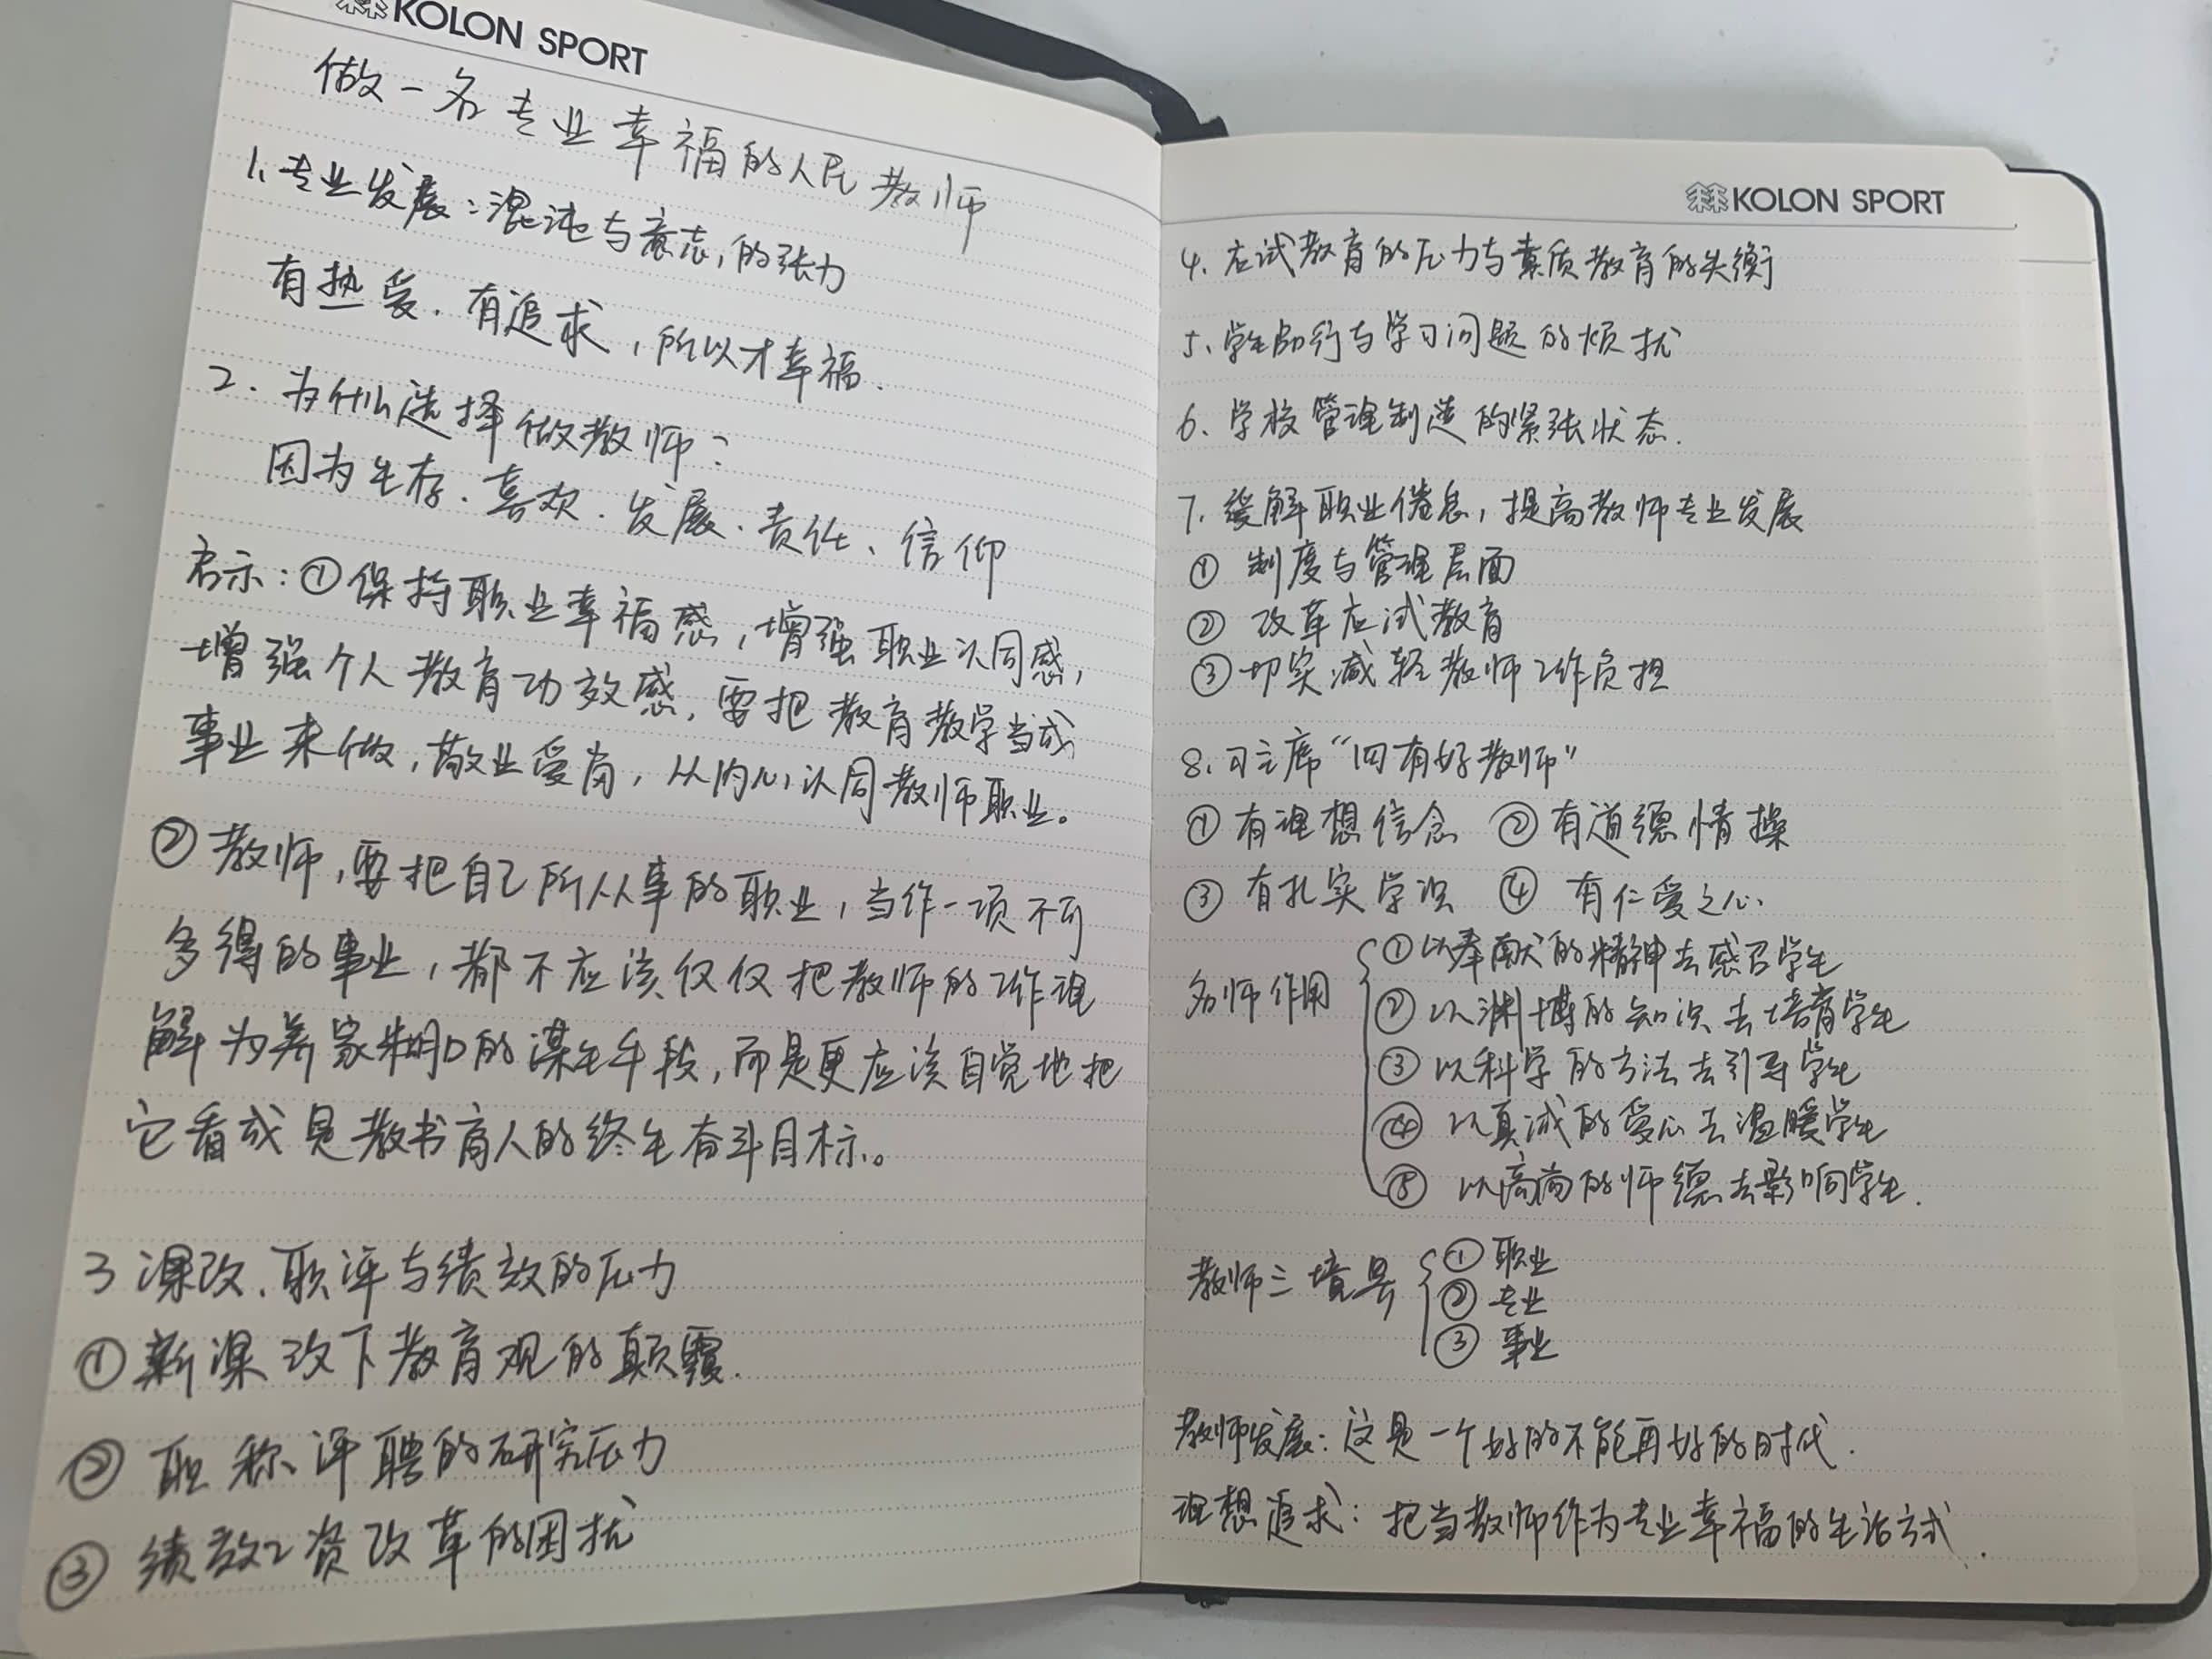 KOLON SPORT
做一名专业幸福的人民教师
1、专业发展：混沌与意志，的张力
有热爱．有追求，所以才幸福．
2．为什么选择做教师？
因为生存．喜欢．发展、责任、信仰
启示：①保持职业幸福感，增强职业认同感，
增强个人教育功效感，要把教育教学当成
事业来做，敬业爱岗，从内心认同教师职业。
②教师，要把自己所从事的职业，当作一项不可
多得的事业，都不应该仅仅把教师的工作理
解为养家糊口的谋生手段，而是更应该自觉地把
它看成是教书育人的终生奋斗目标。
3 课改、职评与绩效的压力
①新课改下教育观的颠覆．
②职称评聘的研究压力
③绩效工资改革的困扰
KOLON SPORT
4、应试教育的压力与素质教育的失衡
5、学生品行与学习问题的烦扰
6、学校管理制造的紧张状态．
7、缓解职业倦怠，提高教师专业发展
①制度与管理层面
②改革应试教育
③切实减轻教师工作负担
8、习主席“四有好教师”
①有理想信念 ②有道德情操
③有扎实学识 ④有仁爱之心
名师作用
①以奉献的精神去感召学生
②以渊博的知识去培育学生
③以科学的方法去引导学生
④以真诚的爱心去温暖学生
⑤以高尚的师德去影响学生．
教师三境界
①职业
②专业
③事业
教师发展：这是一个好的不能再好的时代．
理想追求：把当教师作为专业幸福的生活方式．